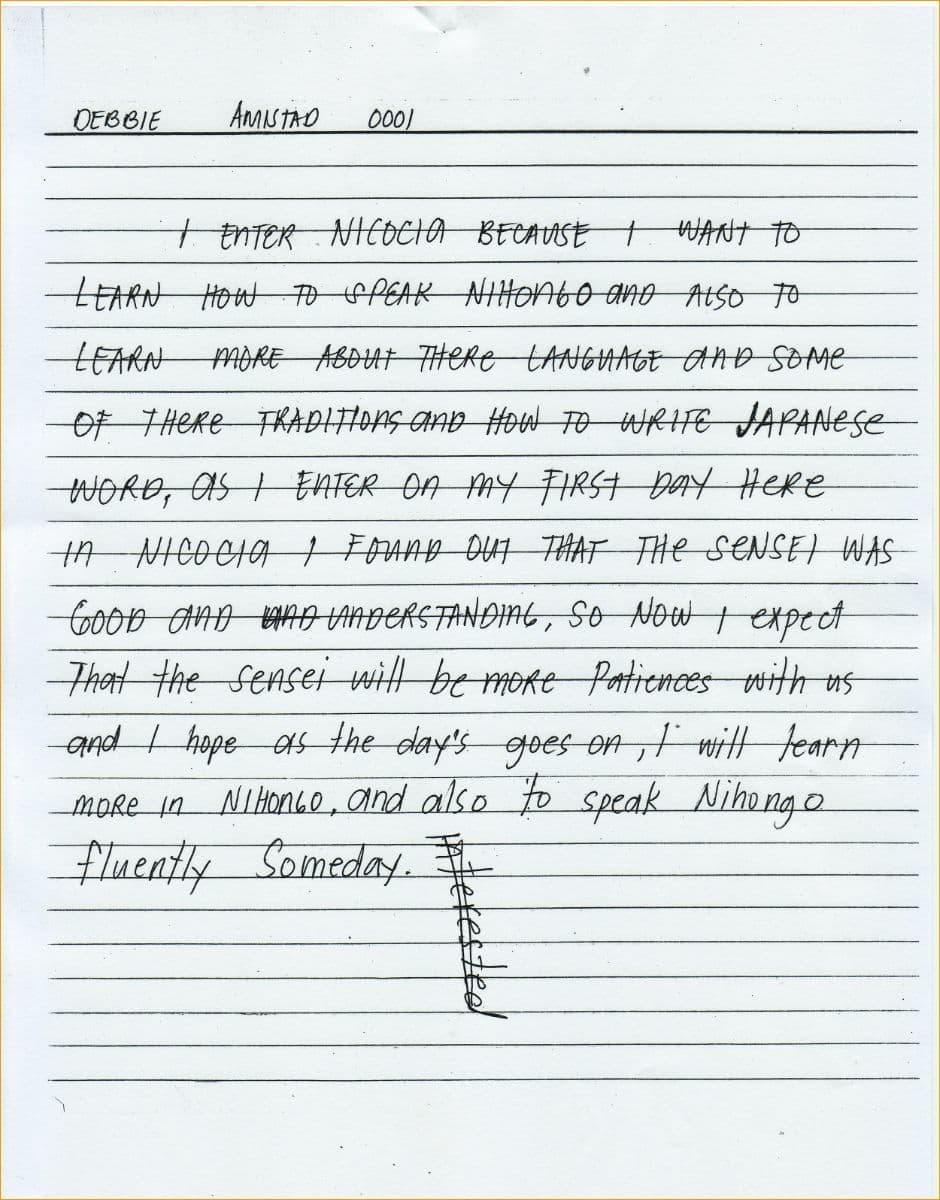 DEBBIE AMISTAD 0001
I ENTER NICOCIA BECAUSE I WANT TO
LEARN HOW TO SPEAK NIHONGO AND ALSO TO
LEARN MORE ABOUT THERE LANGUAGE AND SOME
OF THERE TRADITIONS AND HOW TO WRITE JAPANESE
WORD, AS I ENTER ON MY FIRST DAY HERE
IN NICOCIA I FOUND OUT THAT THE SENSEI WAS
GOOD AND UND UNDERSTANDING, SO NOW I expect
That the sensei will be more Patiences with us
and I hope as the day's goes on, I will learn
more in NIHONGO, and also to speak Nihongo
fluently Someday.
Interested